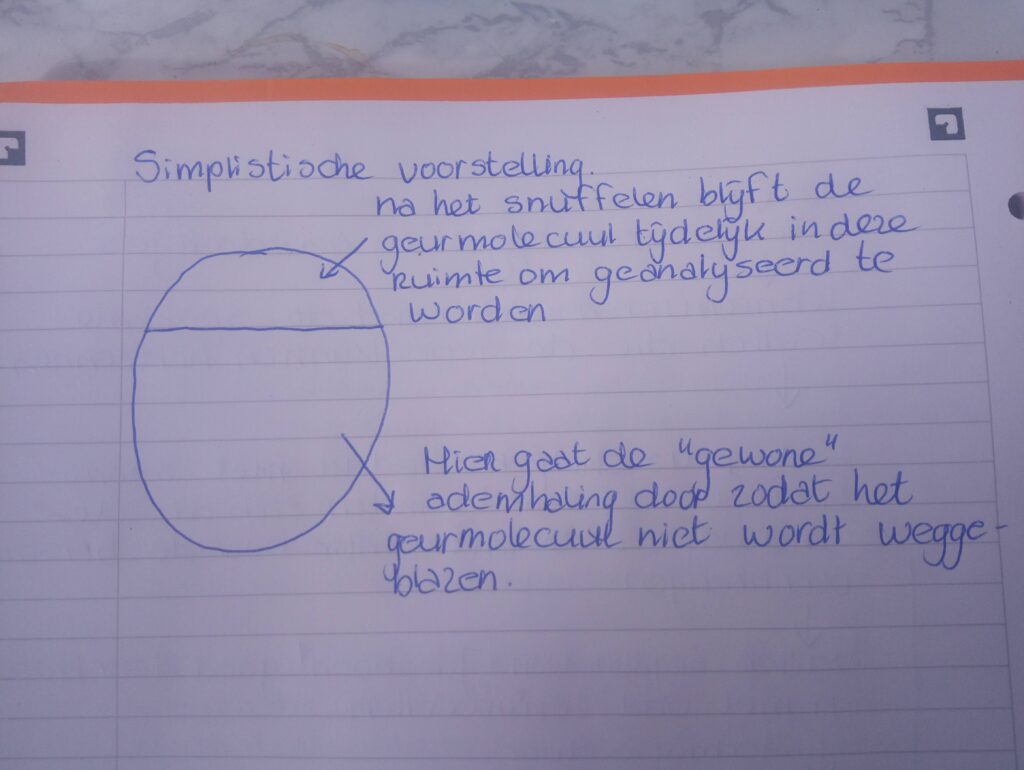 Simplistische voorstelling.
na het snuffelen blijft de
geurmolecuul tijdelijk in deze
ruimte om geanalyseerd te
worden
Hier gaat de "gewone"
ademhaling door zodat het
geurmolecuul niet wordt wegge-
blazen.